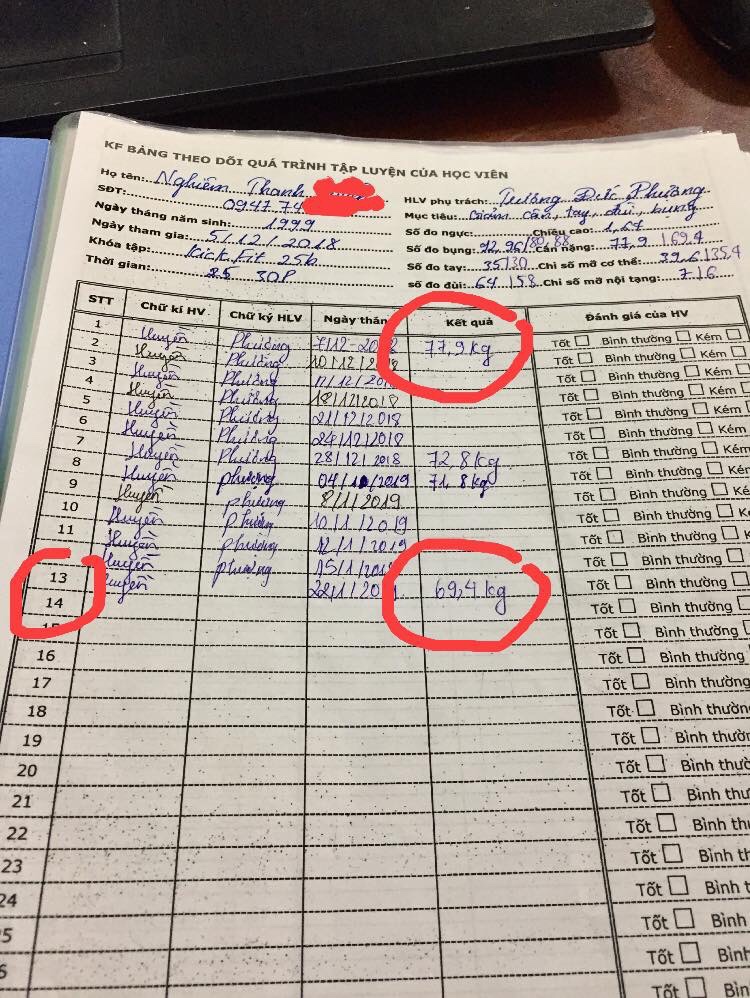 KF BẢNG THEO DÕI QUÁ TRÌNH TẬP LUYỆN CỦA HỌC VIÊN
Họ tên: Nghiêm Thanh
SĐT: 0947 74
Ngày tháng năm sinh: 1999
Ngày tham gia: 5/12/2018
Khóa tập: Kick Fit 25b
Thời gian: 25 30P
HLV phụ trách: Trương Đức Phường
Mục tiêu: Giảm cân, tay, đùi, bụng
Số đo ngực: Chiều cao: 1,67
Số đo bụng: 92, 96/80, 88 Cân nặng: 77,9 169,4
Số đo tay: 35/30 Chỉ số mỡ cơ thể: 39,6/35,4
số đo đùi: 64 158 Chỉ số mỡ nội tạng: 716
STT Chữ kí HV Chữ ký HLV Ngày thán Kết quả Đánh giá của HV
1 Huyền Phường 7/12-20 77,9 kg Tốt Bình thường Kém
2 Huyền Phường 10/12/2018 Tốt Bình thường Kém
3 Huyền Phường 11/12/2018 Tốt Bình thường Kém
4 Huyền Phường 18/12/2018 Tốt Bình thường Kém
5 Huyền Phường 21/12/2018 Tốt Bình thường Kém
6 Huyền Phường 24/12/2018 Tốt Bình thường Kém
7 Huyền Phường 28/12/2018 72,8 kg Tốt Bình thường Kém
8 Huyền phường 04/1/2019 71,8 kg Tốt Bình thường Kém
9 Huyền phường 8/1/2019 Tốt Bình thường Kém
10 Huyền phường 10/1/2019 Tốt Bình thường Kém
11 Huyền phường 12/1/2019 Tốt Bình thường
Huyền phường 15/1/201 Tốt Bình thường
13 Huyền 22/1/20 69,4 kg Tốt Bình thường
14 Tốt Bình thường
15 Tốt Bình thường
16 Tốt Bình thường
17 Tốt Bình thườn
18 Tốt Bình thườn
19 Tốt Bình thườn
20 Tốt Bình thườ
21 Tốt Bình thư
22 Tốt Bình thư
23 Tốt Bình th
24 Tốt Bình th
5 Tốt Bình t
6 Tốt Bình
Tốt Bình